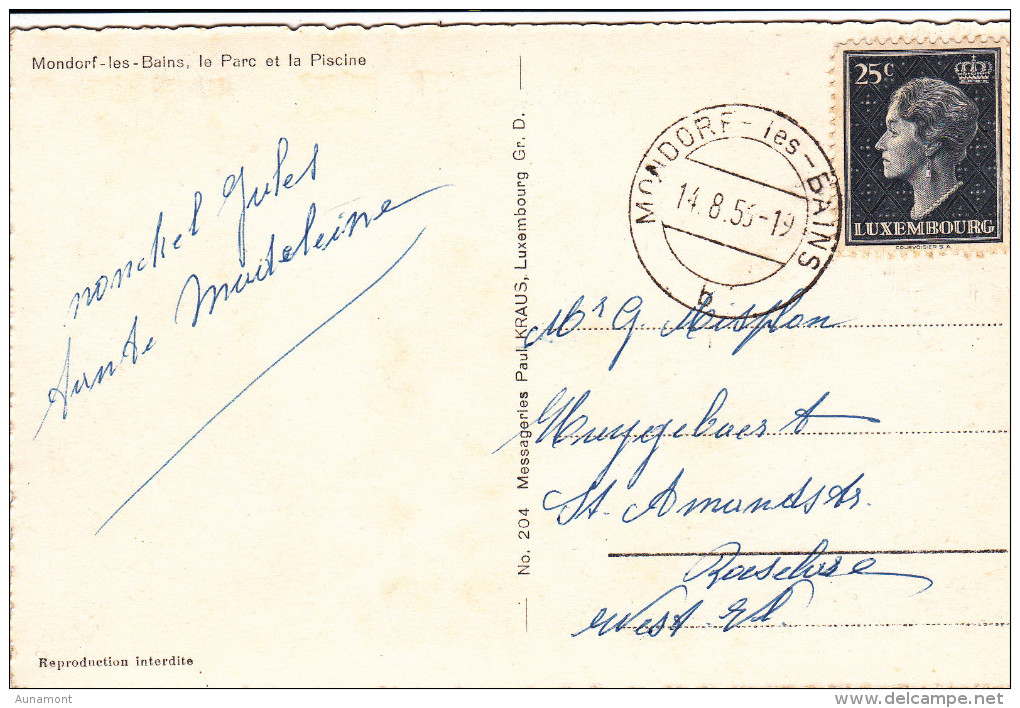 Mondorf-les-Bains, le Parc et la Piscine
nonckel Jules
tante Madeleine
Reproduction interdite
No. 204 Messageries Paul KRAUS, Luxembourg Gr. D.
MONDORF-les-BAINS
14.8.53-19
25c
LUXEMBOURG
COURVOISIER S.A.
Mr G. Misplon
Huyzebaert
St. Amandstr.
Roeselare
West. Vl.
Aunamont
delcampe.net